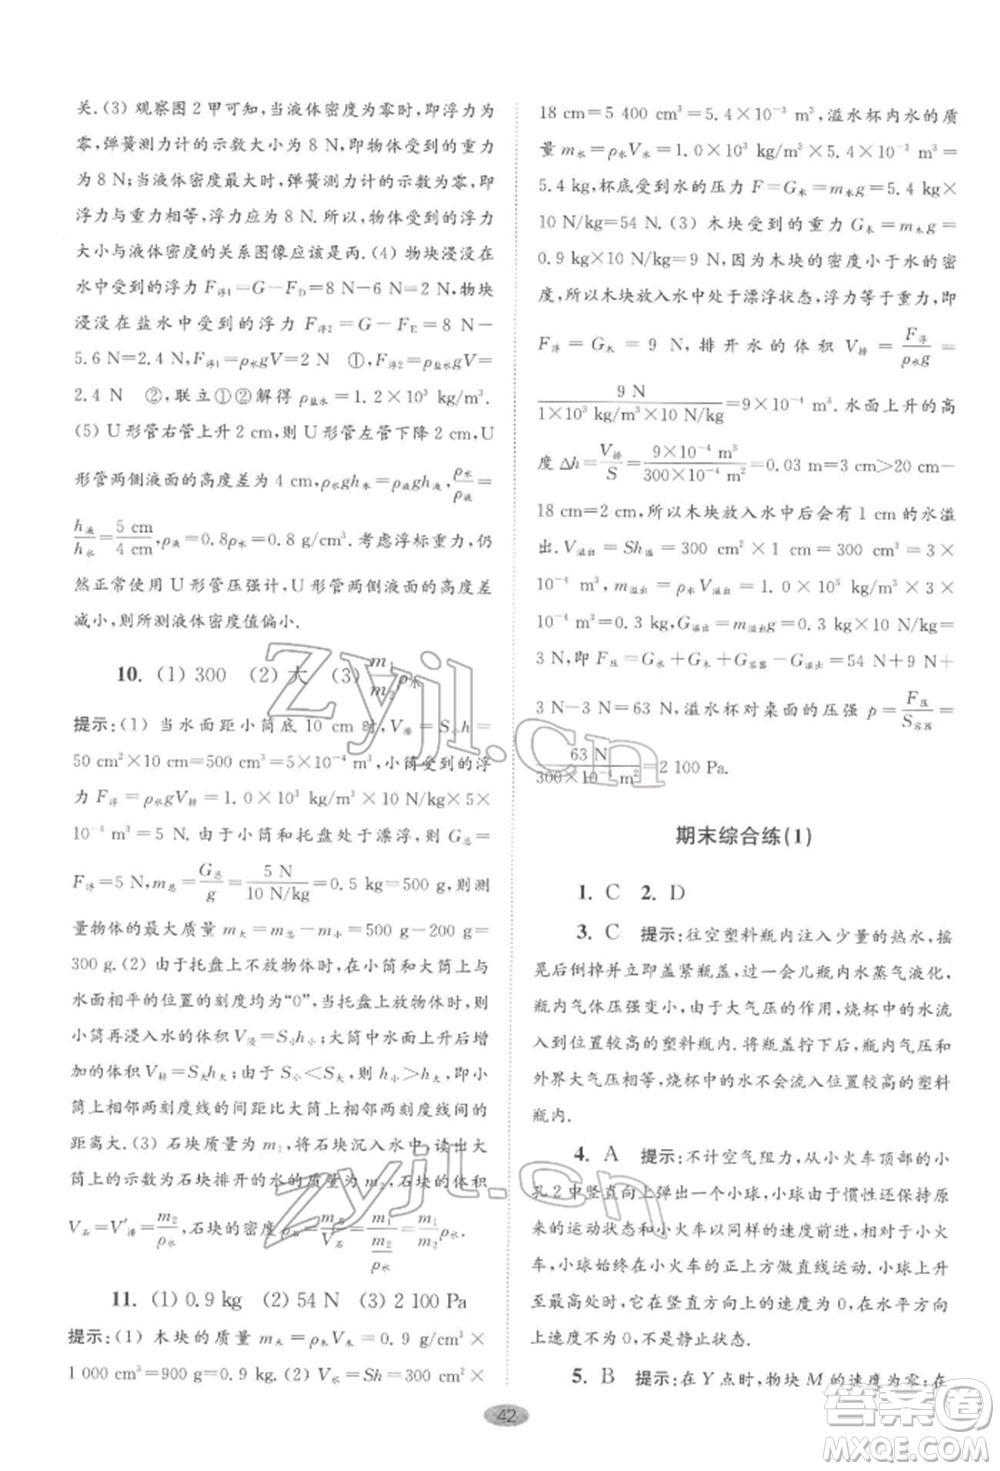 关. (3) 观察图 2 甲可知,当液体密度为零时,即浮力为
零,弹簧测力计的示数大小为 8 N,即物体受到的重力
为 8 N;当液体密度最大时,弹簧测力计的示数为零,即
浮力与重力相等,浮力应为 8 N. 所以,物体受到的浮力
大小与液体密度的关系图像应该是丙. (4) 物块浸没在
水中受到的浮力 F浮1=G-FD=8 N-6 N=2 N,物块
浸没在盐水中受到的浮力 F浮2=G-FE=8 N-
5.6 N=2.4 N,F浮1=ρ水gV=2 N ①,F浮2=ρ盐水gV=
2.4 N ②,联立①②解得 ρ盐水=1.2×10³ kg/m³.
(5) U 形管右管上升 2 cm,则 U 形管左管下降 2 cm,U
形管两侧液面的高度差为 4 cm,ρ水gh水=ρ液gh液,ρ水/ρ液=
h液/h水=5 cm/4 cm,ρ液=0.8ρ水=0.8 g/cm³. 考虑浮标重力,仍
然正常使用 U 形管压强计,U 形管两侧液面的高度差
减小,则所测液体密度值偏小.
10. (1) 300 (2) 大 (3) m1/m2 ρ水
提示:(1) 当水面距小筒底 10 cm 时,V排=S小h=
50 cm²×10 cm=500 cm³=5×10⁻⁴ m³,小筒受到的浮
力 F浮=ρ水gV排=1.0×10³ kg/m³×10 N/kg×5×
10⁻⁴ m³=5 N. 由于小筒和托盘处于漂浮,则有 G总=
F浮=5 N,m总=G总/g=5 N/10 N/kg=0.5 kg=500 g,则测
量物体的最大质量 m大=m总-m小=500 g-200 g=
300 g. (2) 由于托盘上不放物体时,小筒和大筒上与
水面相平的位置的刻度均为“0”,当托盘上放物体时,
小筒再浸入水的体积 V浸=S小h小;大筒中水面上升增加
的体积 V排=S大h大;由于 S小<S大,所以 h小>h大,即小
筒上相邻两刻度线的间距比大筒上相邻两刻度线间的
距离大. (3) 石块质量为 m1,将石块沉入水中,读出水面
的示数为石块排开水的质量为 m2,石块的体积
V石=V′排=m2/ρ水,石块的密度 ρ石=m石/V石=m1/(m2/ρ水)=m1/m2 ρ水.
11. (1) 0.9 kg (2) 54 N (3) 2 100 Pa
提示:(1) 木块的质量 m木=ρ木V木=0.9 g/cm³×
1 000 cm³=900 g=0.9 kg. (2) V水=Sh=300 cm²×
18 cm=5 400 cm³=5.4×10⁻³ m³,溢水杯内水的质
量 m水=ρ水V水=1.0×10³ kg/m³×5.4×10⁻³ m³=
5.4 kg,杯底受到水的压力 F=G水=m水g=5.4 kg
×10 N/kg=54 N. (3) 木块受到的重力 G木=m木g=
0.9 kg×10 N/kg=9 N,因为木块的密度小于水的密
度,所以木块放入水中处于漂浮状态,浮力等于重力,即
F浮=G木=9 N,排开水的体积 V排=F浮/ρ水g=
9 N/1×10³ kg/m³×10 N/kg=9×10⁻⁴ m³. 水面上升的高
度 Δh=V排/S=9×10⁻⁴ m³/300×10⁻⁴ m²=0.03 m=3 cm>20 cm-
18 cm=2 cm,所以木块放入水中后会有 1 cm 的水溢
出. V溢出=Sh溢=300 cm²×1 cm=300 cm³=3×
10⁻⁴ m³,m溢出=ρ水V溢出=1.0×10³ kg/m³×3×
10⁻⁴ m³=0.3 kg,G溢出=m溢出g=0.3 kg×10 N/kg=
3 N,F压=G水+G木+G容器-G溢出=54 N+9 N+
3 N-3 N=63 N,溢水杯对桌面的压强 p=F压/S容器=
63 N/300×10⁻⁴ m²=2 100 Pa.
期末综合练(1)
1. C 2. D
3. C 提示:往空塑料瓶内注入少量的热水,摇
晃后倒掉并立即盖紧瓶盖,过一会儿瓶内水蒸气液化,
瓶内气体压强变小,由于大气压的作用,烧杯中的水流
入位置较高的塑料瓶内. 将瓶盖拧下后,瓶内气压和
外界大气压相等,烧杯中的水不会流入位置较高的塑料
瓶内.
4. A 提示:不计空气阻力,从小火车顶部的小
孔 2 中竖直向上弹出一个小球,小球由于惯性还保持原
来的运动状态和小火车以同样的速度前行,对于小火
车,小球始终在小火车的正上方做直线运动. 小球上升
至最高处时,它在竖直方向上的速度为 0,在水平方向
上速度不为 0,不是静止状态.
5. B 提示:在 Y 点时,物块 M 的速度为零;在
42
zyjl.cn
zyjl.cn
答案圈
MXQE.COM